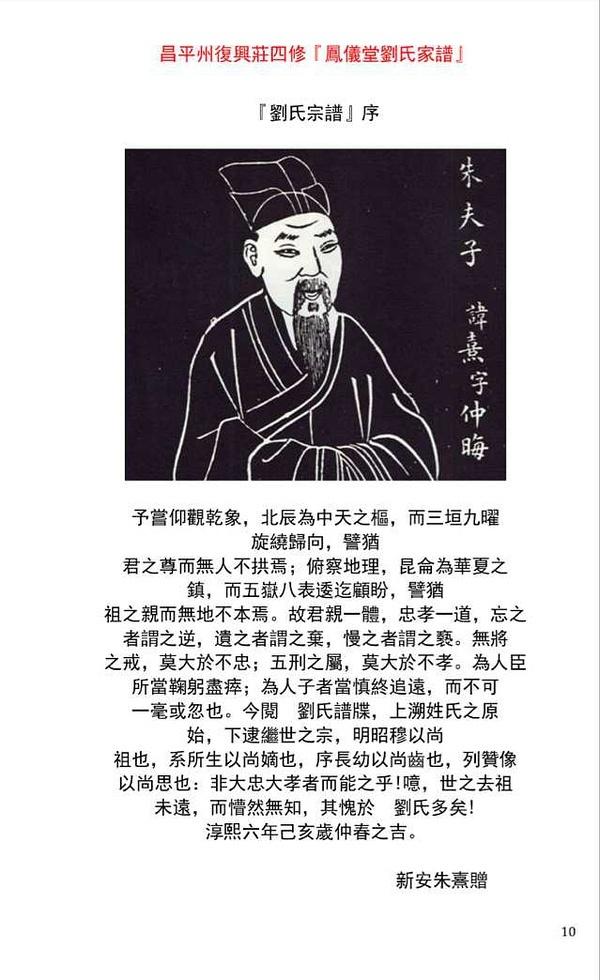 昌平州復興莊四修『鳳儀堂劉氏家譜』
『劉氏宗譜』序
朱夫子 諱熹字仲晦
予嘗仰觀乾象，北辰為中天之樞，而三垣九曜
旋繞歸向，譬猶
君之尊而無人不拱焉；俯察地理，昆侖為華夏之
鎮，而五嶽八表逶迄顧盼，譬猶
祖之親而無地不本焉。故君親一體，忠孝一道，忘之
者謂之逆，遺之者謂之棄，慢之者謂之褻。無將
之戒，莫大於不忠；五刑之屬，莫大於不孝。為人臣
所當鞠躬盡瘁；為人子者當慎終追遠，而不可
一毫或忽也。今閱　劉氏譜牒，上溯姓氏之原
始，下逮繼世之宗，明昭穆以尚
祖也，系所生以尚嫡也，序長幼以尚齒也，列贊像
以尚思也：非大忠大孝者而能之乎!噫，世之去祖
未遠，而懵然無知，其愧於　劉氏多矣!
淳熙六年己亥歲仲春之吉。
新安朱熹贈
10